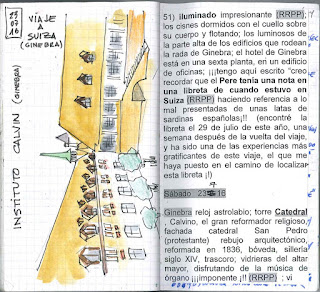 23
07
16
VIAJE
A
SUIZA
(GINEBRA)
INSTITUTO CALVIN (GINEBRA)
51) iluminado impresionante (RRPP);
los cisnes dormidos con el cuello sobre
su cuerpo y flotando; los luminosos de
la parte alta de los edificios que rodean
la rada de Ginebra; el hotel de Ginebra
está en una sexta planta, en un edificio
de oficinas; ¡¡¡tengo aquí escrito "creo
recordar que el Pere tenía una nota en
una libreta de cuando estuvo en
Suiza (RRPP) haciendo referencia a lo
mal presentadas de unas latas de
sardinas españolas¡!! (encontré la
libreta el 29 de julio de este año, una
semana después de la vuelta del viaje,
y ha sido una de las experiencias más
gratificantes de este viaje, el que me
haya puesto en el camino de localizar
esta libreta ¡!)
Sábado 23 16
Ginebra reloj astrolabio; torre Catedral
Calvino, el gran reformador religioso,
fachada catedral San Pedro
(protestante) rebujo arquitectónico,
reformada en 1836, bóveda, sillería
siglo XIV, trascoro; vidrieras del altar
mayor, disfrutando de la música de
órgano ¡¡¡imponente ¡!! (RRPP) ; vi